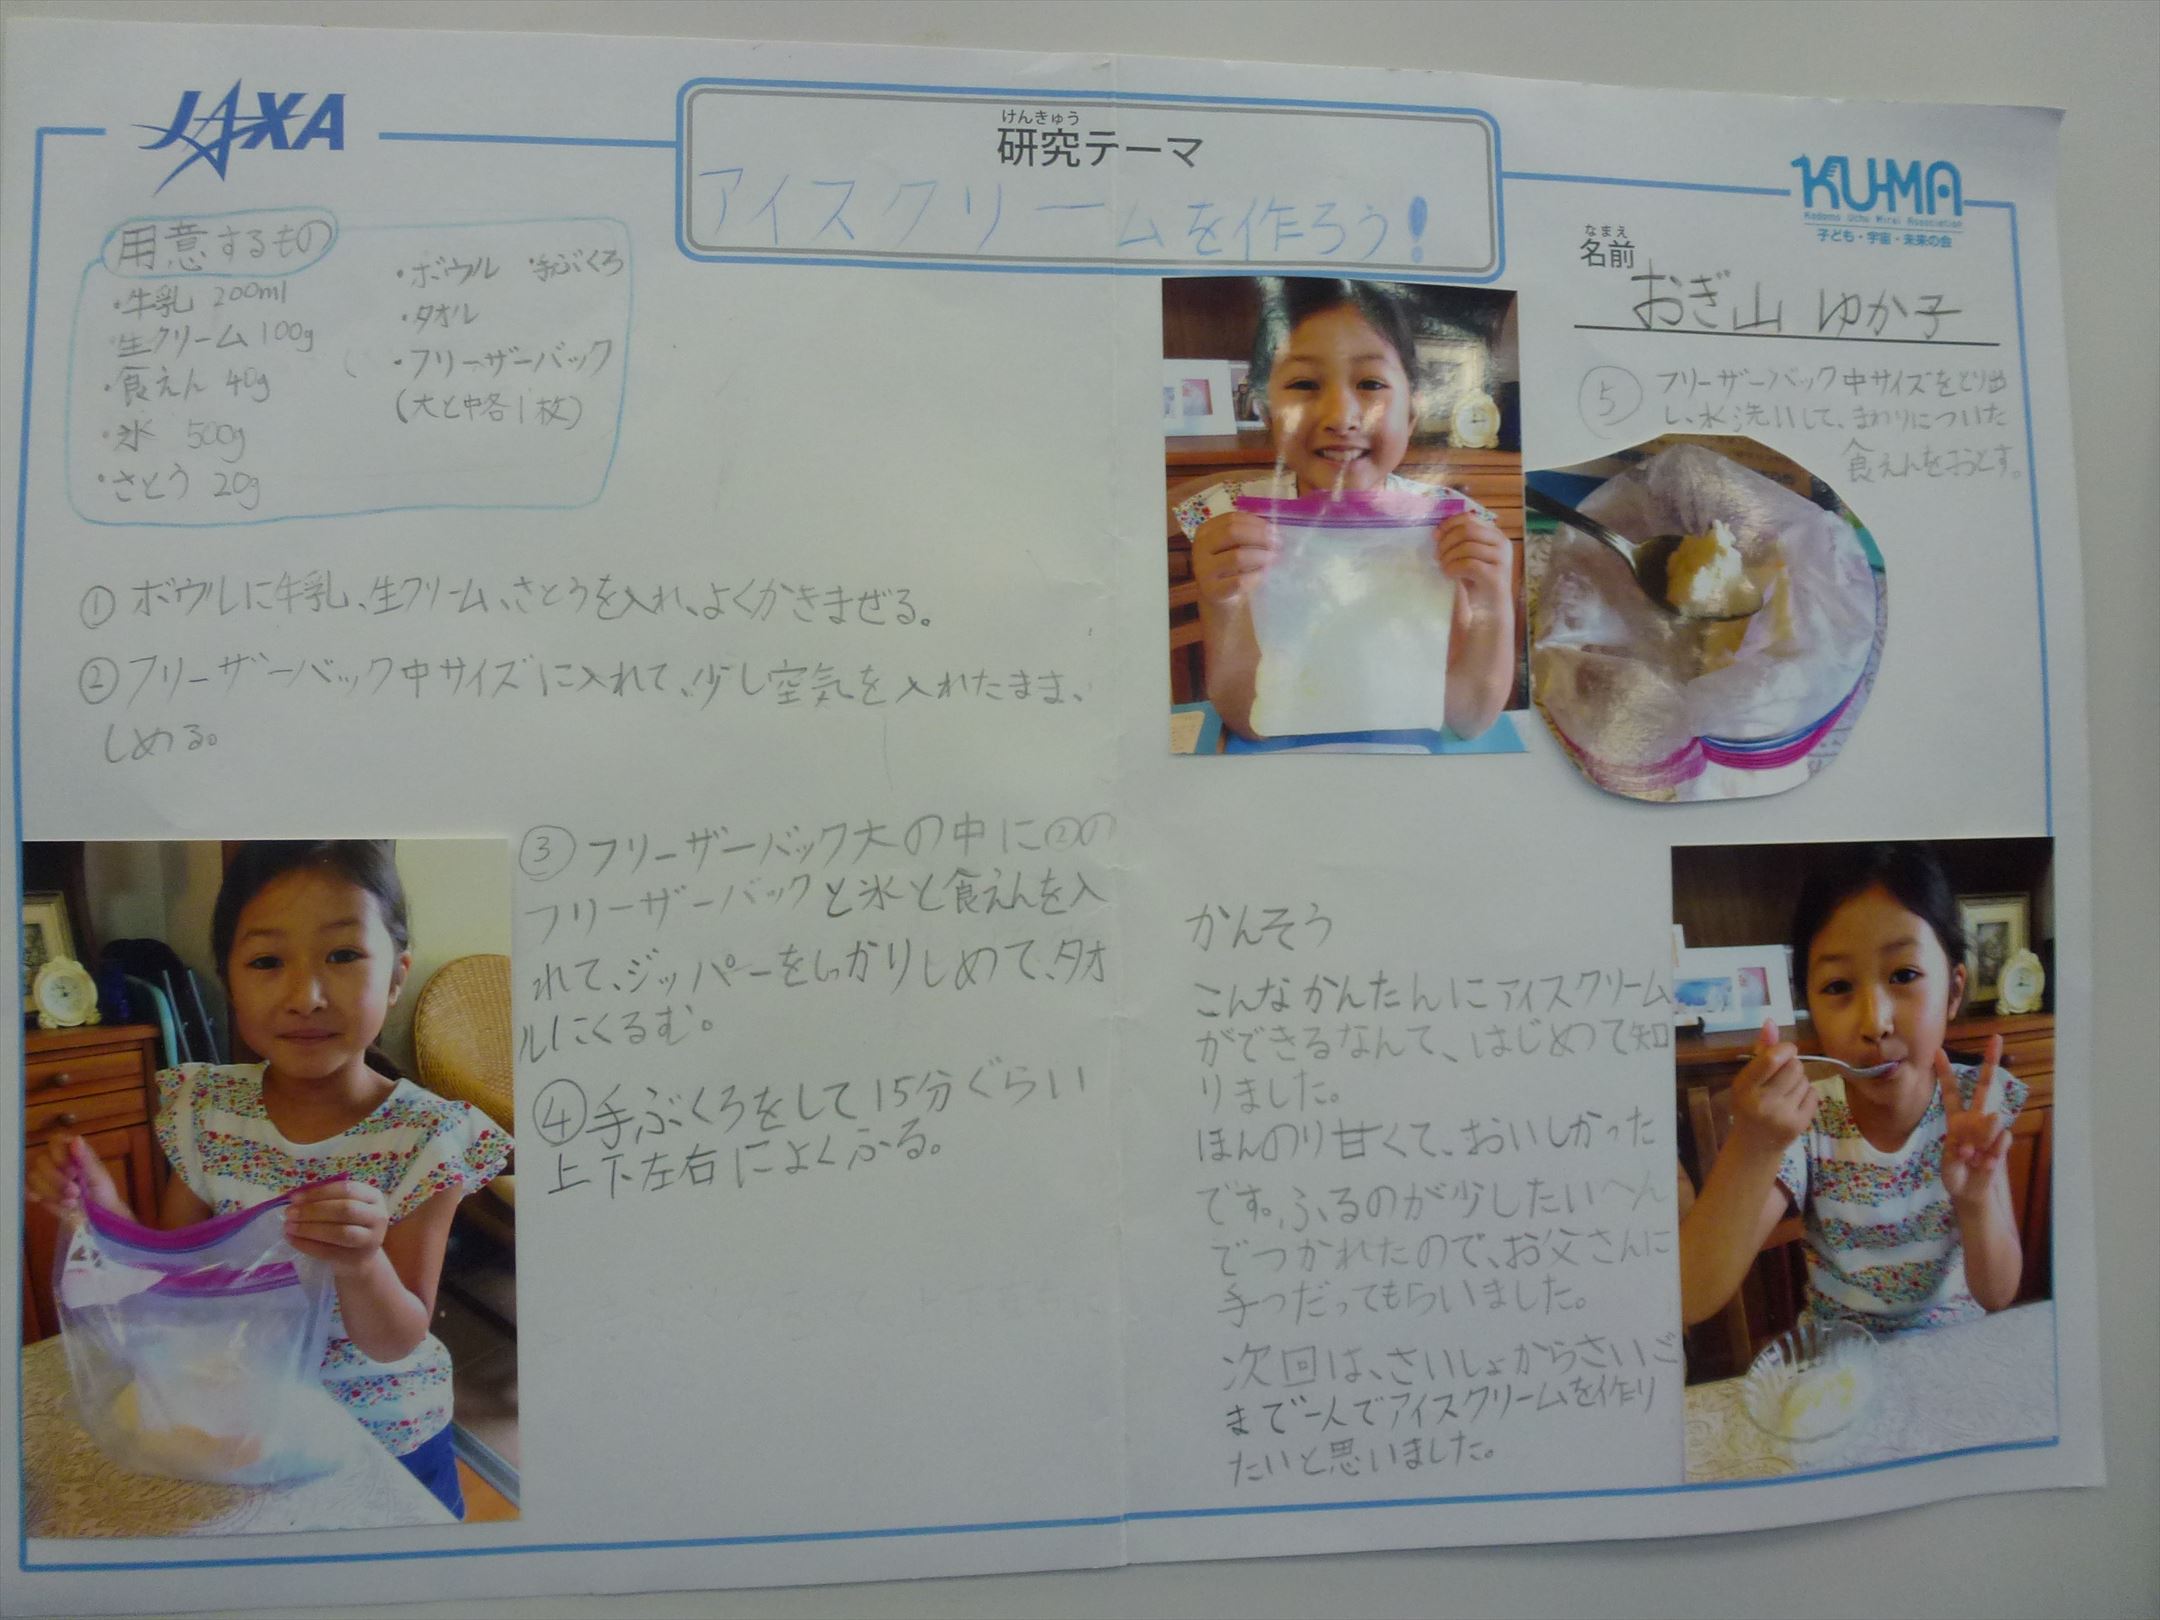 JAXA
けんきゅう
研究テーマ
アイスクリームを作ろう!
KU-MA
Kodomo Uchu Mirai Association
子ども・宇宙・未来の会
なまえ
名前
おぎ山 ゆか子
用意するもの
・牛乳 200ml
・生クリーム 100g
・食えん 40g
・氷 500g
・さとう 20g
・ボウル ・手ぶくろ
・タオル
・フリーザーバック
(大と中各1枚)
①ボウルに牛乳、生クリーム、さとうを入れ、よくかきまぜる。
②フリーザーバック中サイズに入れて、少し空気を入れたまま、
しめる。
③フリーザーバック大の中に②の
フリーザーバックと氷と食えんを入
れて、ジッパーをしっかりしめて、タオ
ルにくるむ。
④手ぶくろをして15分ぐらい
上下左右によくふる。
⑤フリーザーバック中サイズをとり出
し、水洗いして、まわりについた
食えんをおとす。
かんそう
こんなかんたんにアイスクリーム
ができるなんて、はじめて知
りました。
ほんのり甘くて、おいしかった
です。ふるのが少したいへん
でつかれたので、お父さんに
手つだってもらいました。
次回は、さいしょからさいご
まで一人でアイスクリームを作り
たいと思いました。